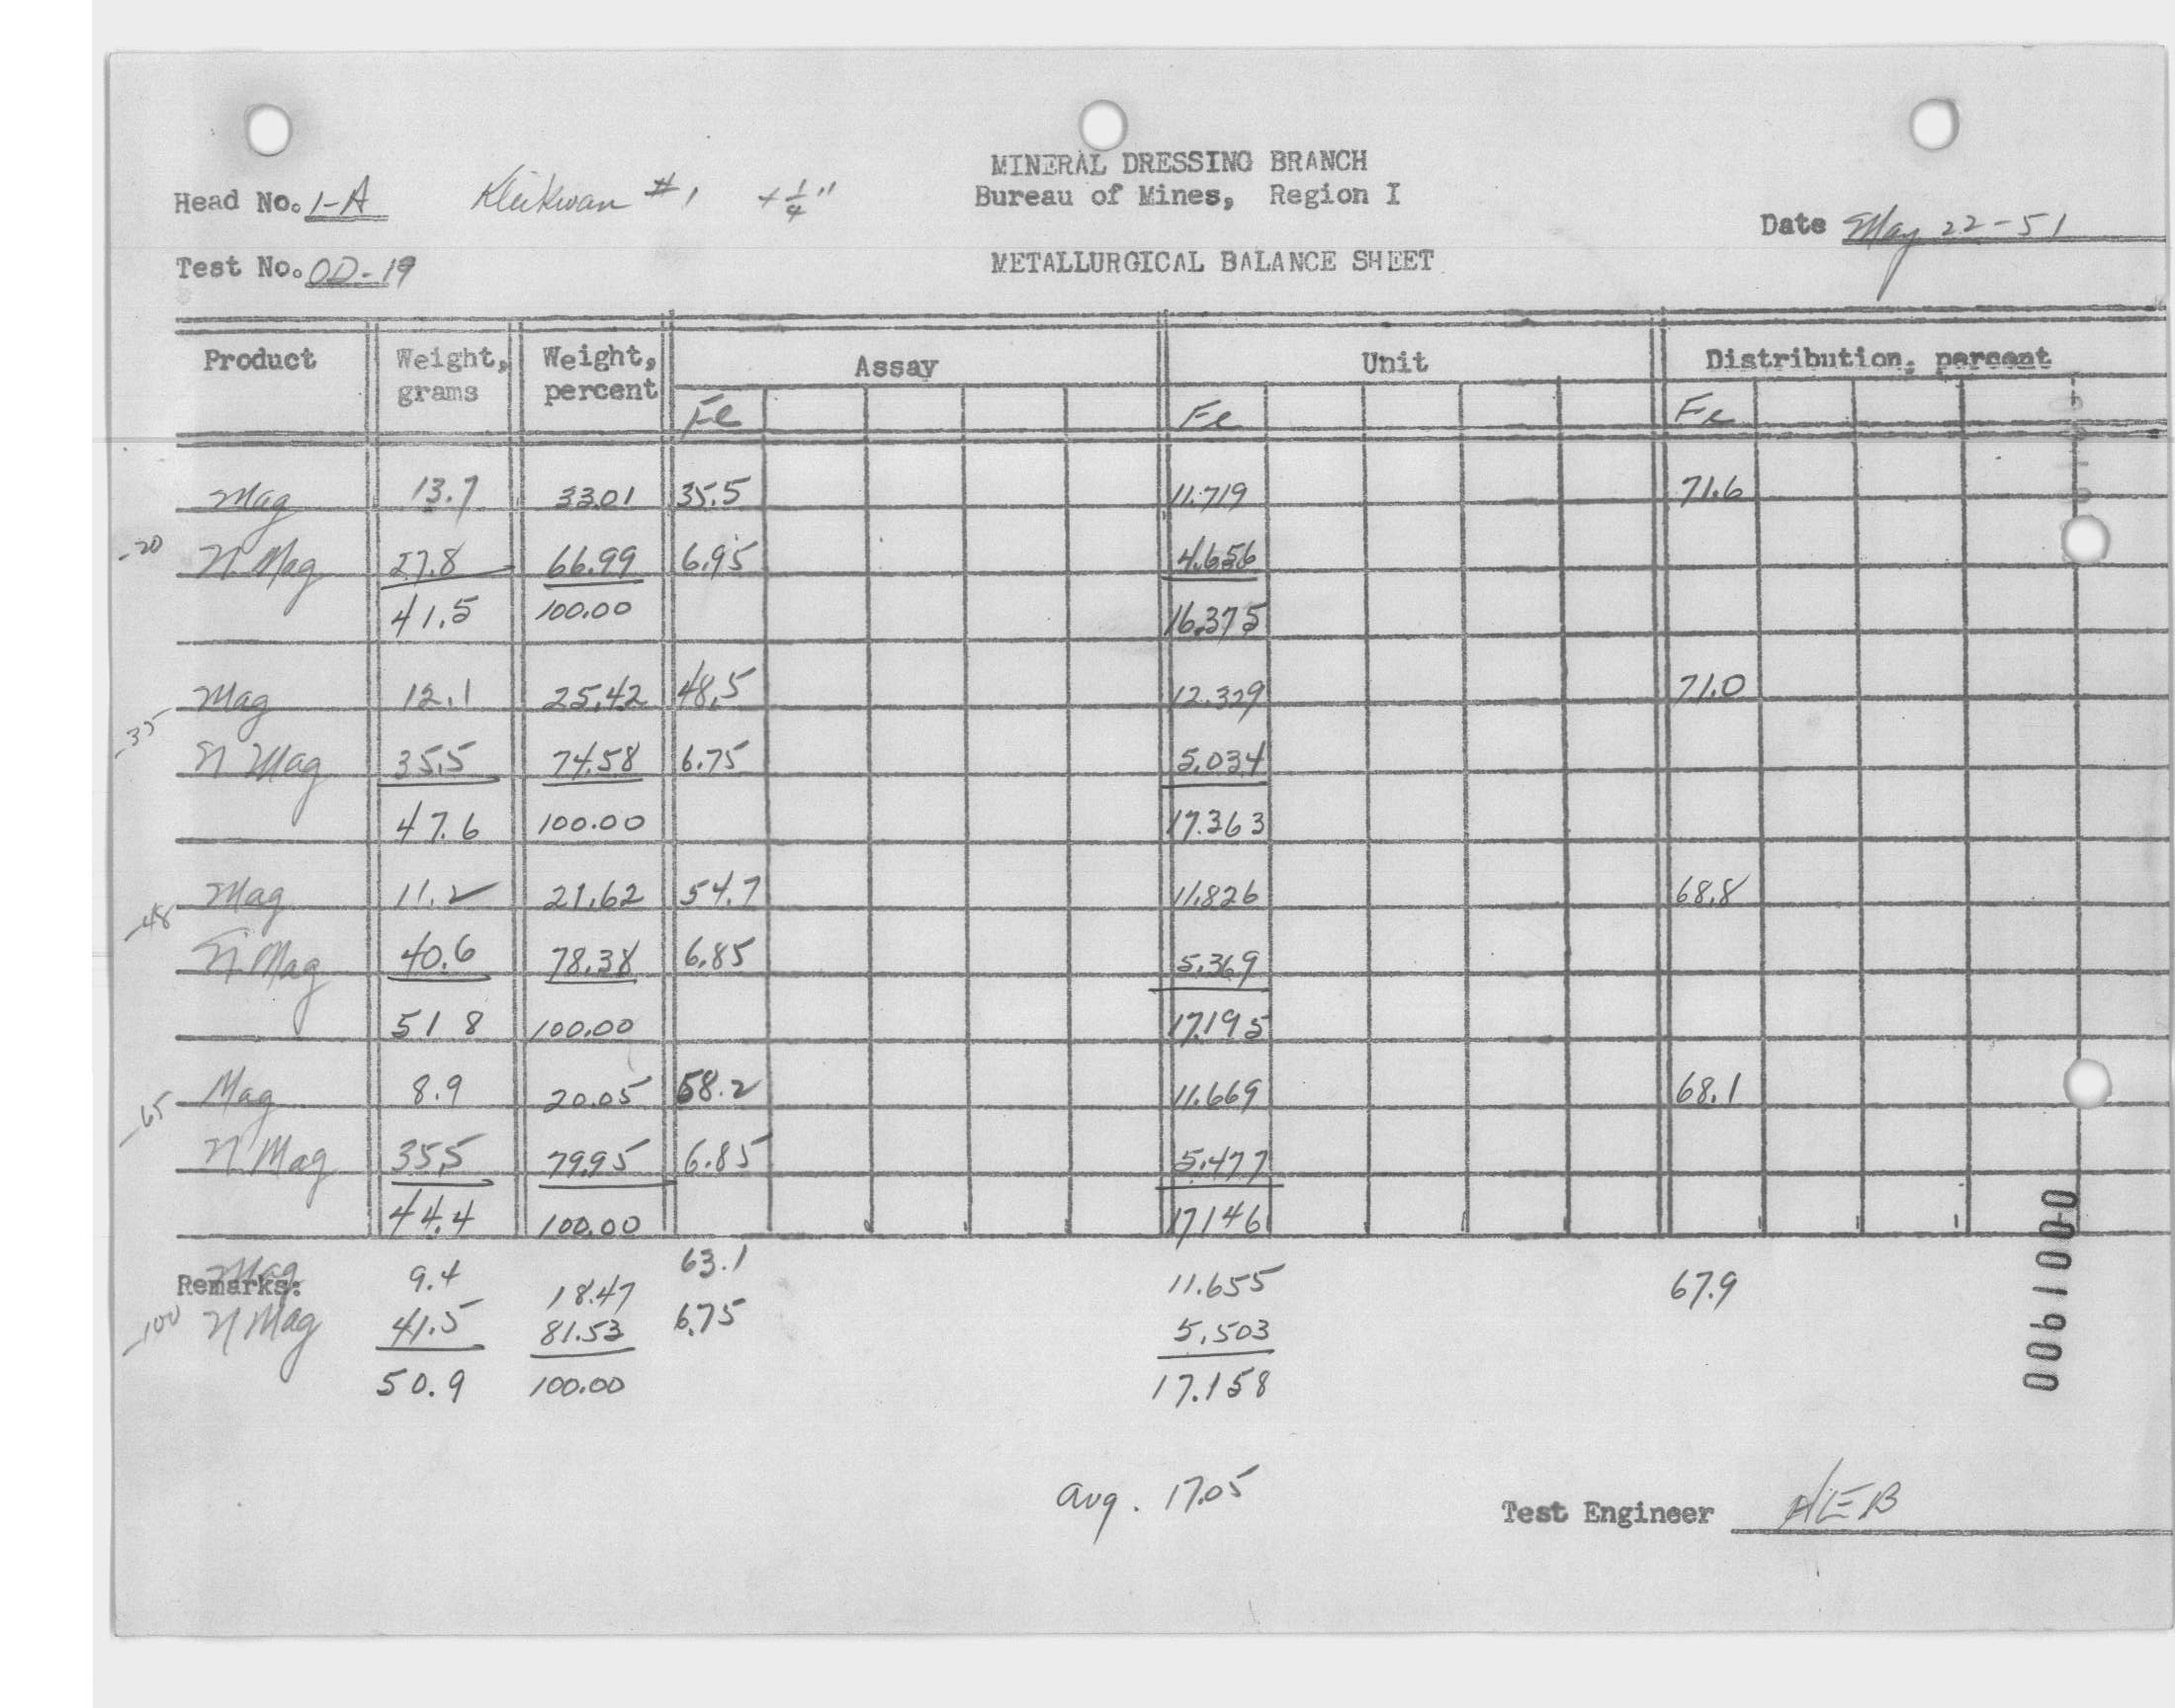 MINERAL DRESSING BRANCH
Head No. 1-A Klukwan #1 +1/4" Bureau of Mines, Region I
Date May 22-51
Test No. OD-19 METALLURGICAL BALANCE SHEET
Product Weight, grams Weight, percent Assay Unit Distribution, percent
Fe Fe Fe
Mag 13.7 33.01 35.5 11.719 71.6
-20 N Mag 27.8 66.99 6.95 4.656
41.5 100.00 16.375
Mag 12.1 25.42 48.5 12.329 71.0
-35 N Mag 35.5 74.58 6.75 5.034
47.6 100.00 17.363
Mag 11.2 21.62 54.7 11.826 68.8
-48 N Mag 40.6 78.38 6.85 5.369
51 8 100.00 17.195
Mag 8.9 20.05 58.2 11.669 68.1
-65 N Mag 35.5 79.95 6.85 5.477
44.4 100.00 17.146
Remarks: Mag 9.4 18.47 63.1 11.655 67.9
-100 N Mag 41.5 81.53 6.75 5.503
50.9 100.00 17.158
avg. 17.05
Test Engineer HEB
0061000